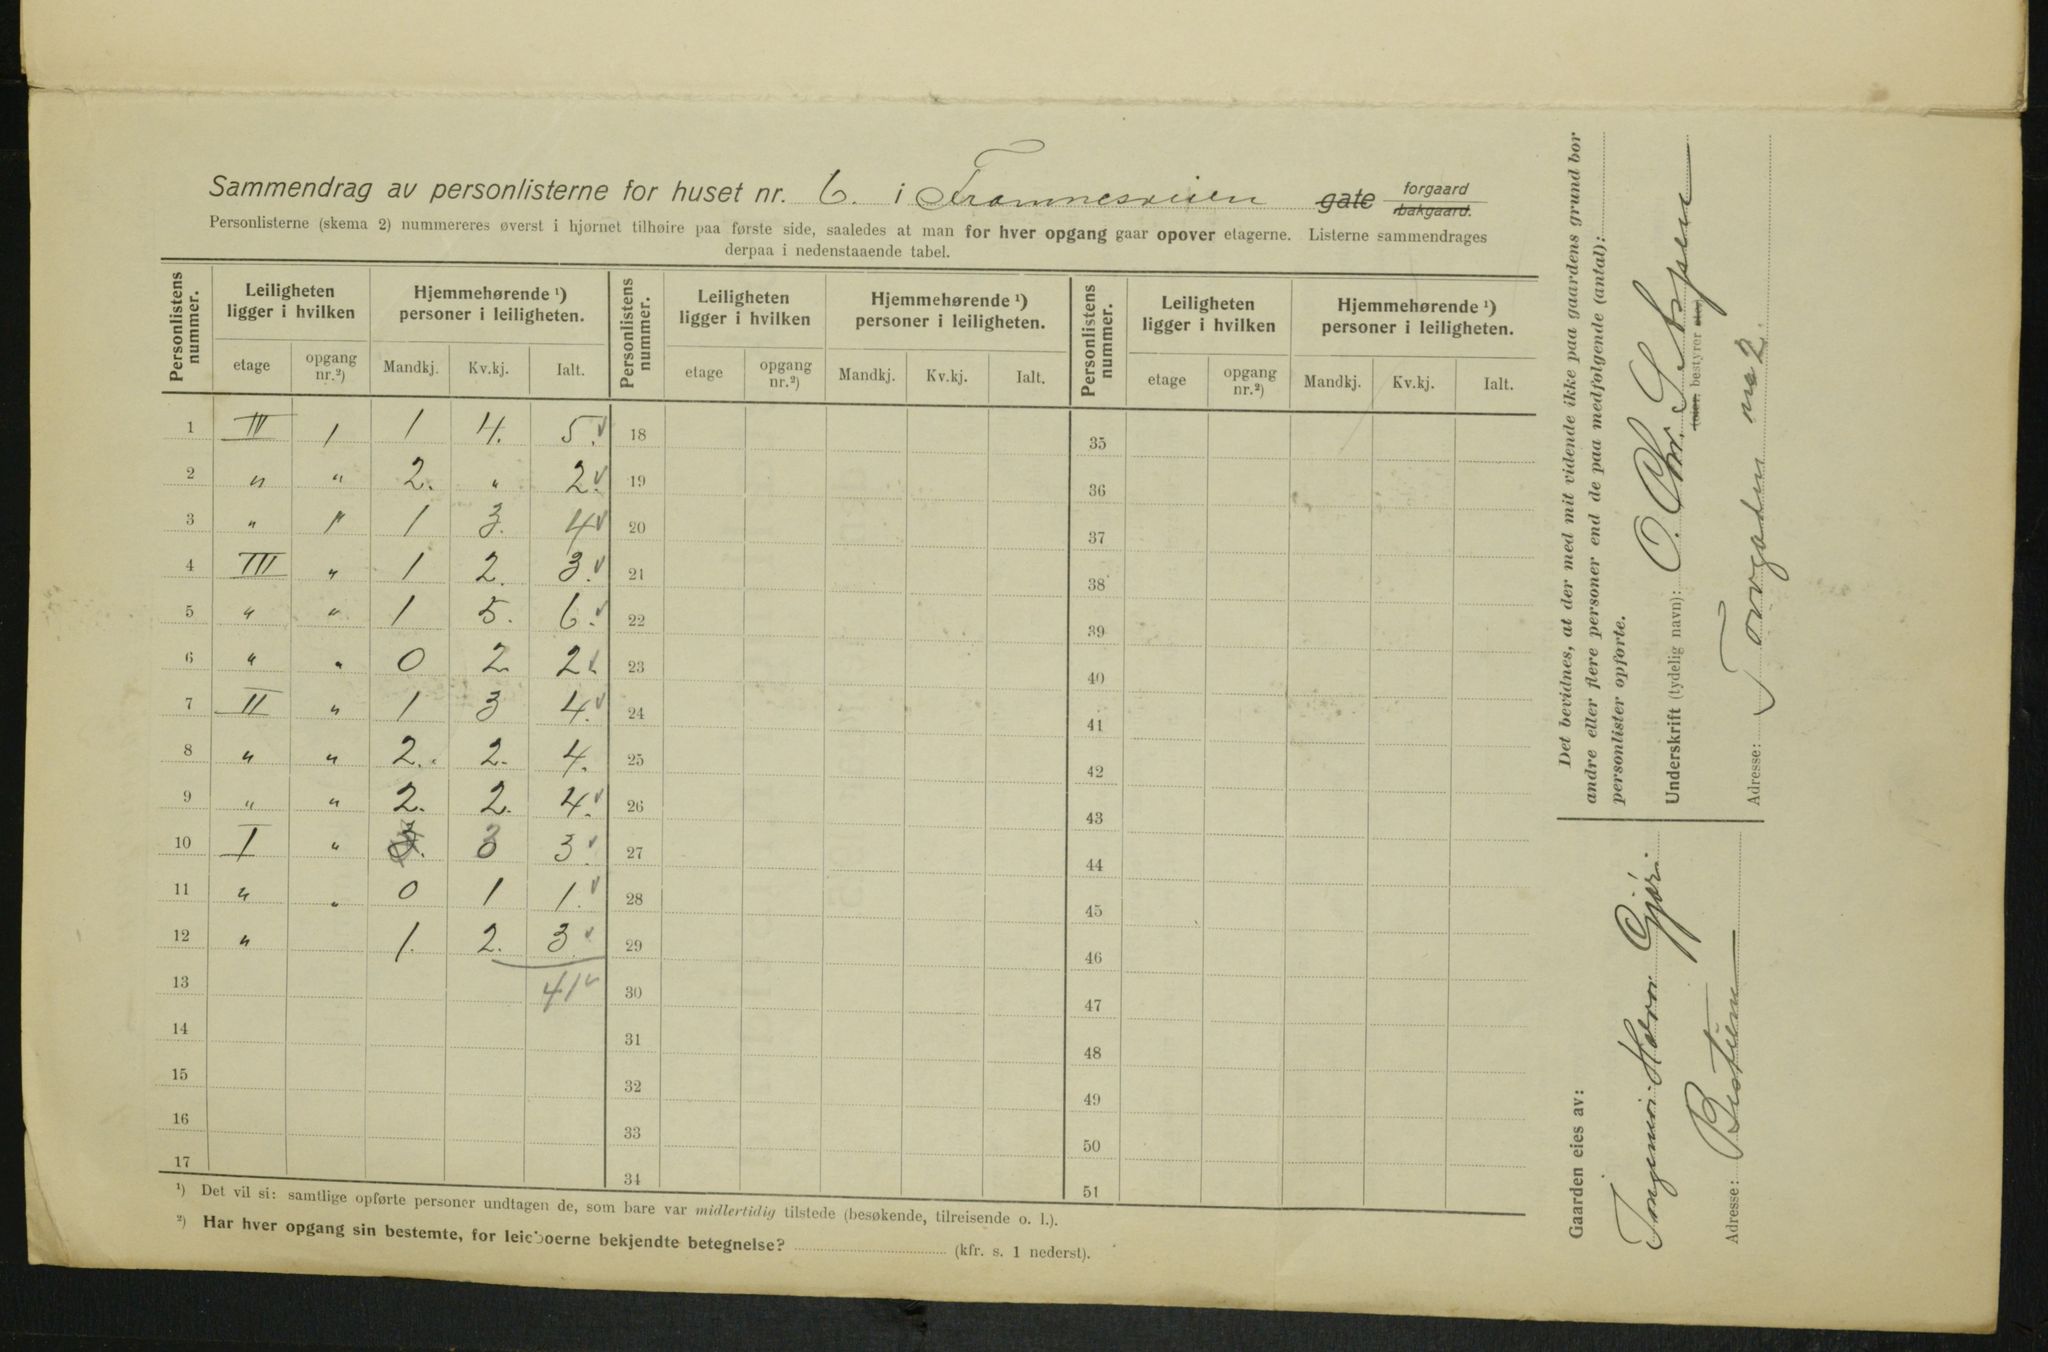 Sammendrag av personlisterne for huset nr. 6. i Framnesveien gate forgaard bakgaard.
Personlisterne (skema 2) nummereres øverst i hjørnet tilhøire paa første side, saaledes at man for hver opgang gaar opover etagerne. Listerne sammendrages
derpaa i nedenstaaende tabel.
Personlistens nummer. Leiligheten ligger i hvilken Hjemmehørende ¹) personer i leiligheten. Personlistens nummer. Leiligheten ligger i hvilken Hjemmehørende ¹) personer i leiligheten. Personlistens nummer. Leiligheten ligger i hvilken Hjemmehørende ¹) personer i leiligheten.
etage opgang nr.²) Mandkj. Kv.kj. Ialt. etage opgang nr.²) Mandkj. Kv.kj. Ialt. etage opgang nr.²) Mandkj. Kv.kj. Ialt.
1 IV 1 1 4. 5. 18 35
2 " " 2. " 2. 19 36
3 " " 1 3. 4 20 37
4 III " 1 2. 3. 21 38
5 " " 1 5. 6. 22 39
6 " " 0 2. 2. 23 40
7 II " 1 3 4. 24 41
8 " " 2. 2. 4. 25 42
9 " " 2. 2. 4. 26 43
10 I " 3. 3 3. 27 44
11 " " 0 1 1. 28 45
12 " 1. 2. 3. 29 46
13 41 30 47
14 31 48
15 32 49
16 33 50
17 34 51
¹) Det vil si: samtlige opførte personer undtagen de, som bare var midlertidig tilstede (besøkende, tilreisende o. l.).
²) Har hver opgang sin bestemte, for leieboerne bekjendte betegnelse? (kfr. s. 1 nederst).
Det bevidnes, at der med mit vidende ikke paa gaardens grund bor
andre eller flere personer end de paa medfølgende (antal):
personlister opførte.
Underskrift (tydelig navn): O. Chr.
(eier. bestyrer etc.)
Adresse: Torvgaten no 2.
Gaarden eies av:
Gjør
Adresse: Bestum